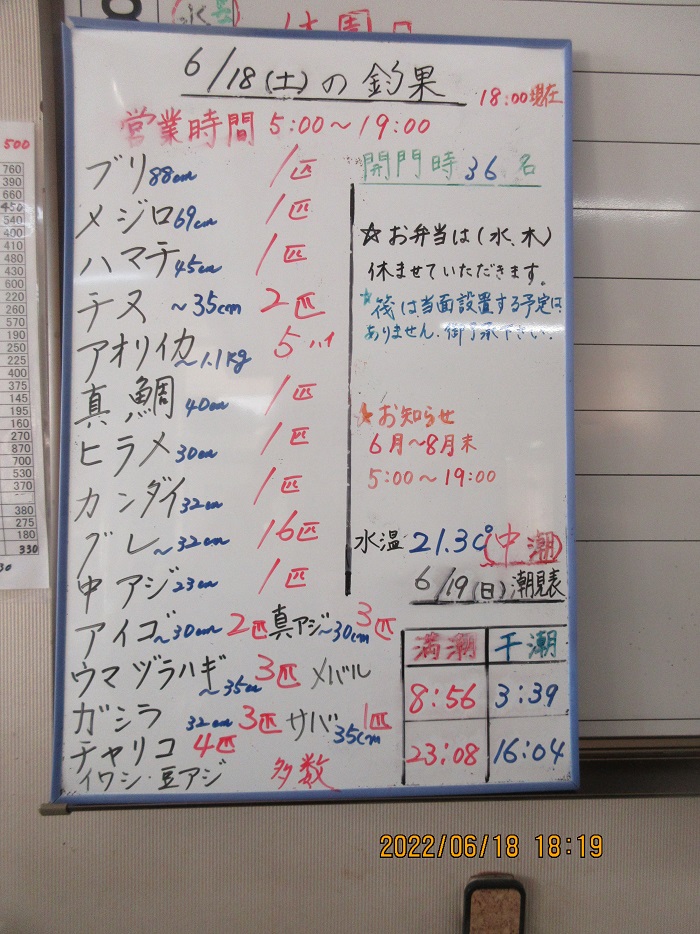 6/18(土)の釣果
18:00現在
営業時間 5:00～19:00
ブリ88cm 1匹
メジロ69cm 1匹
ハマチ45cm 1匹
チヌ ～35cm 2匹
アオリイカ～1.1kg 5ハイ
真鯛40cm 1匹
ヒラメ30cm 1匹
カンダイ32cm 1匹
グレ～32cm 16匹
中アジ23cm 1匹
アイゴ～30cm 2匹 真アジ～30cm 3匹
ウマヅラハギ～35cm 3匹 メバル
ガシラ 32cm 3匹 サバ35cm 1匹
チャリコ 4匹
イワシ・豆アジ 多数
開門時 36名
☆お弁当は(水、木)
休ませていただきます。
☆筏は当面設置する予定は
ありません.御了承下さい.
☆お知らせ
6月～8月末
5:00～19:00
水温 21.3℃(中潮)
6/19(日)潮見表
満潮 干潮
8:56 3:39
23:08 16:04
2022/06/18 18:19
500
760
390
660
450
540
400
410
480
430
600
220
260
570
190
250
225
400
375
145
195
160
270
870
700
530
370
380
275
180
330